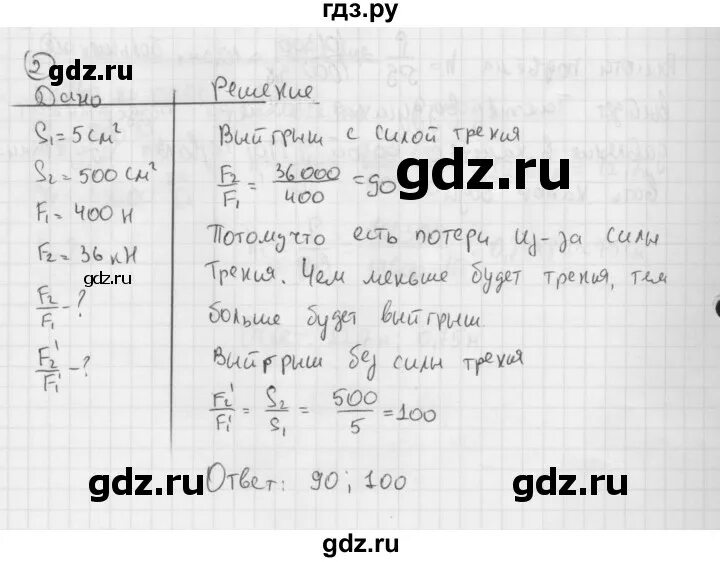 гдз.ру
2
gdz.ru
Дано
Решение
S₁ = 5 см²
S₂ = 500 см²
F₁ = 400 Н
F₂ = 36 кН
F₂/F₁ - ?
F₂'/F₁' - ?
Выйгрыш с силой трения
F₂/F₁ = 36000/400 = 90
gdz.ru
Потому что есть потери из-за силы
трения. Чем меньше будет трения, тем
gdz.ru
больше будет выйгрыш
Выйгрыш без силы трения
F₂'/F₁' = S₂/S₁ = 500/5 = 100
gdz.ru
gdz.ru
Ответ: 90; 100
gdz.ru
gdz.ru